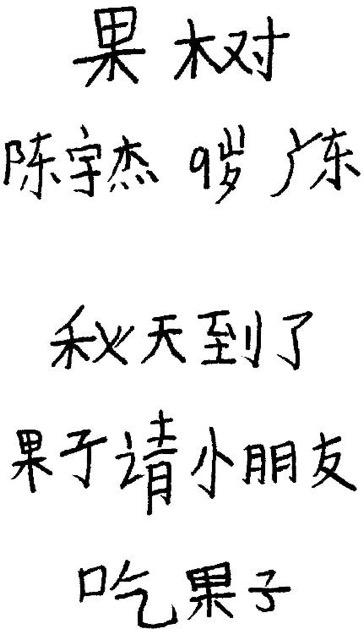 果树
陈宇杰 9岁 广东
秋天到了
果子请小朋友
吃果子